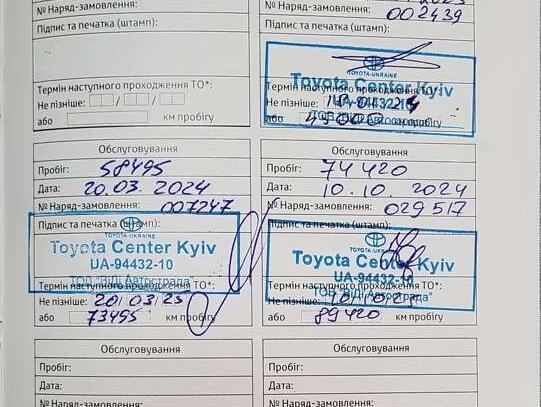 № Наряд-замовлення:
Підпис та печатка (штамп):
Термін наступного проходження ТО*:
Не пізніше: / /
або км пробігу
№ Наряд-замовлення: 002439
Підпис та печатка (штамп):
TOYOTA-UKRAINE
Toyota Center Kyiv
Термін наступного проходження ТО*:
Не пізніше:
UA-94432-10
ТОВ "ВіДі Автострада"
або км пробігу
Обслуговування
Пробіг: 58495
Дата: 20.03.2024
№ Наряд-замовлення: 007247
Підпис та печатка (штамп):
TOYOTA-UKRAINE
Toyota Center Kyiv
UA-94432-10
ТОВ "ВіДі Автострада"
Термін наступного проходження ТО*:
Не пізніше: 20/03/25
або 73495 км пробігу
Обслуговування
Пробіг: 74420
Дата: 10.10.2024
№ Наряд-замовлення: 029517
Підпис та печатка (штамп):
TOYOTA-UKRAINE
Toyota Center Kyiv
UA-94432-10
ТОВ "ВіДі Автострада"
Термін наступного проходження ТО*:
Не пізніше:
або 89420 км пробігу
Обслуговування
Пробіг:
Дата:
№ Наряд-замовлення:
Обслуговування
Пробіг:
Дата:
№ Наряд-замовлення: